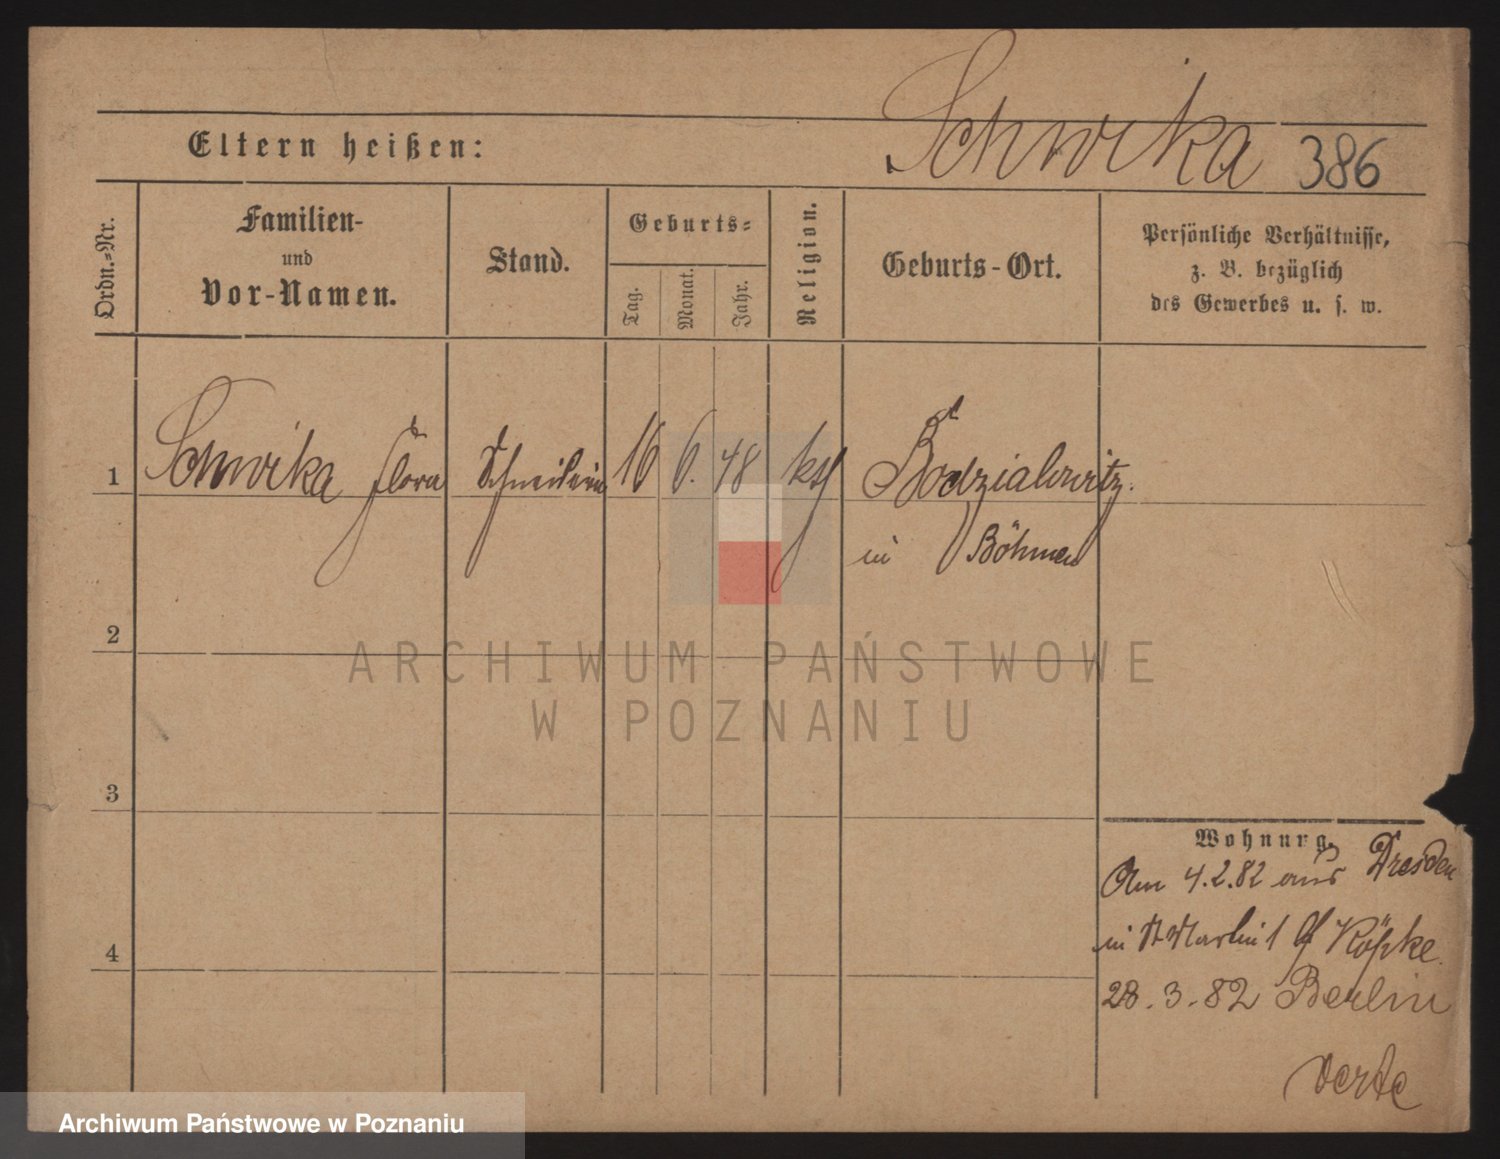 Schwika 386
Eltern heißen:
Ordn.-Nr.
Familien-
und
Vor-Namen.
Stand.
Geburts-
Tag.
Monat.
Jahr.
Religion.
Geburts-Ort.
Persönliche Verhältnisse,
z. B. bezüglich
des Gewerbes u. s. w.
1 Schwika Flora Schneiderin 16 6. 48 kth
in Böhmen
2
ARCHIWUM PAŃSTWOWE
W POZNANIU
3
Wohnung.
Am 4.2.82 aus Dresden
in St Martin 1 Köpke.
4
28.3.82 Berlin
verte
Archiwum Państwowe w Poznaniu